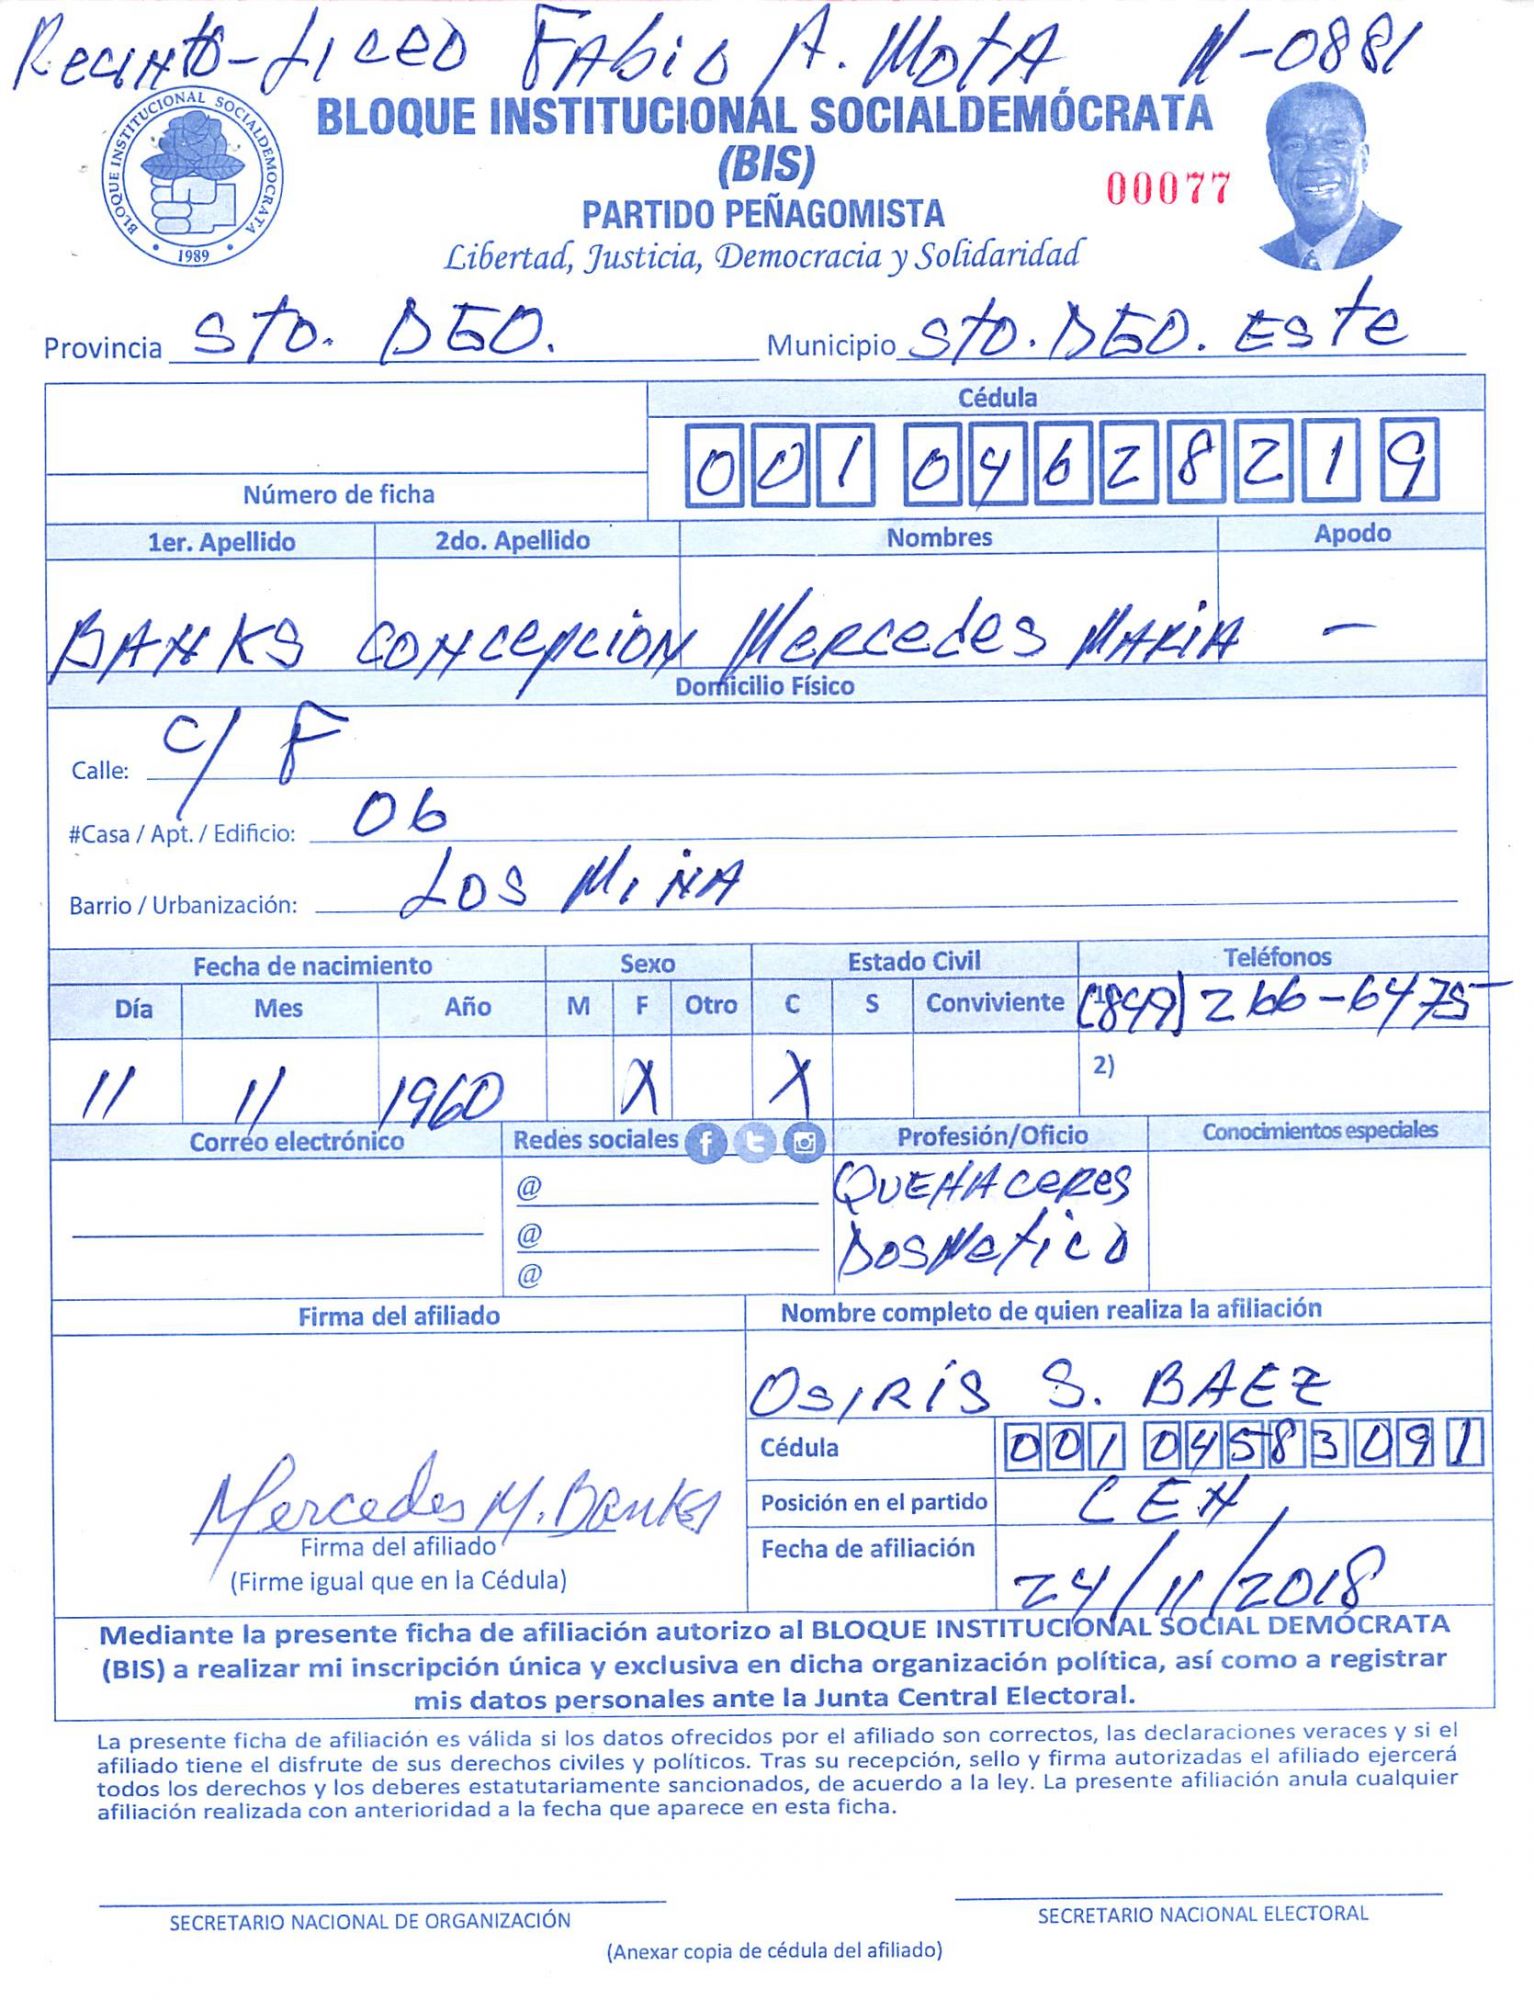 Recinto-Liceo Fabio A. Mota N-0881
BLOQUE INSTITUCIONAL SOCIALDEMOCRATA
1989
BLOQUE INSTITUCIONAL SOCIALDEMÓCRATA
(BIS)
00077
PARTIDO PEÑAGOMISTA
Libertad, Justicia, Democracia y Solidaridad
Provincia Sto. DGO. Municipio Sto. DGO. Este
Cédula
001 04628219
Número de ficha
1er. Apellido 2do. Apellido Nombres Apodo
BANKS CONCEPCION Mercedes MARIA –
Domicilio Físico
Calle: C/ F
#Casa / Apt. / Edificio: 06
Barrio / Urbanización: LOS MINA
Fecha de nacimiento Sexo Estado Civil Teléfonos
Día Mes Año M F Otro C S Conviviente 1) (849) 266-6475
11 11 1960 X X 2)
Correo electrónico Redes sociales Profesión/Oficio Conocimientos especiales
@ QUEHACERES
@ DOSMETICO
@
Firma del afiliado Nombre completo de quien realiza la afiliación
OSIRIS S. BAEZ
Cédula 001 04583091
Mercedes M. Banks
Posición en el partido CEN
Firma del afiliado Fecha de afiliación 24/11/2018
(Firme igual que en la Cédula)
Mediante la presente ficha de afiliación autorizo al BLOQUE INSTITUCIONAL SOCIAL DEMÓCRATA
(BIS) a realizar mi inscripción única y exclusiva en dicha organización política, así como a registrar
mis datos personales ante la Junta Central Electoral.
La presente ficha de afiliación es válida si los datos ofrecidos por el afiliado son correctos, las declaraciones veraces y si el
afiliado tiene el disfrute de sus derechos civiles y políticos. Tras su recepción, sello y firma autorizadas el afiliado ejercerá
todos los derechos y los deberes estatutariamente sancionados, de acuerdo a la ley. La presente afiliación anula cualquier
afiliación realizada con anterioridad a la fecha que aparece en esta ficha.
SECRETARIO NACIONAL DE ORGANIZACIÓN SECRETARIO NACIONAL ELECTORAL
(Anexar copia de cédula del afiliado)